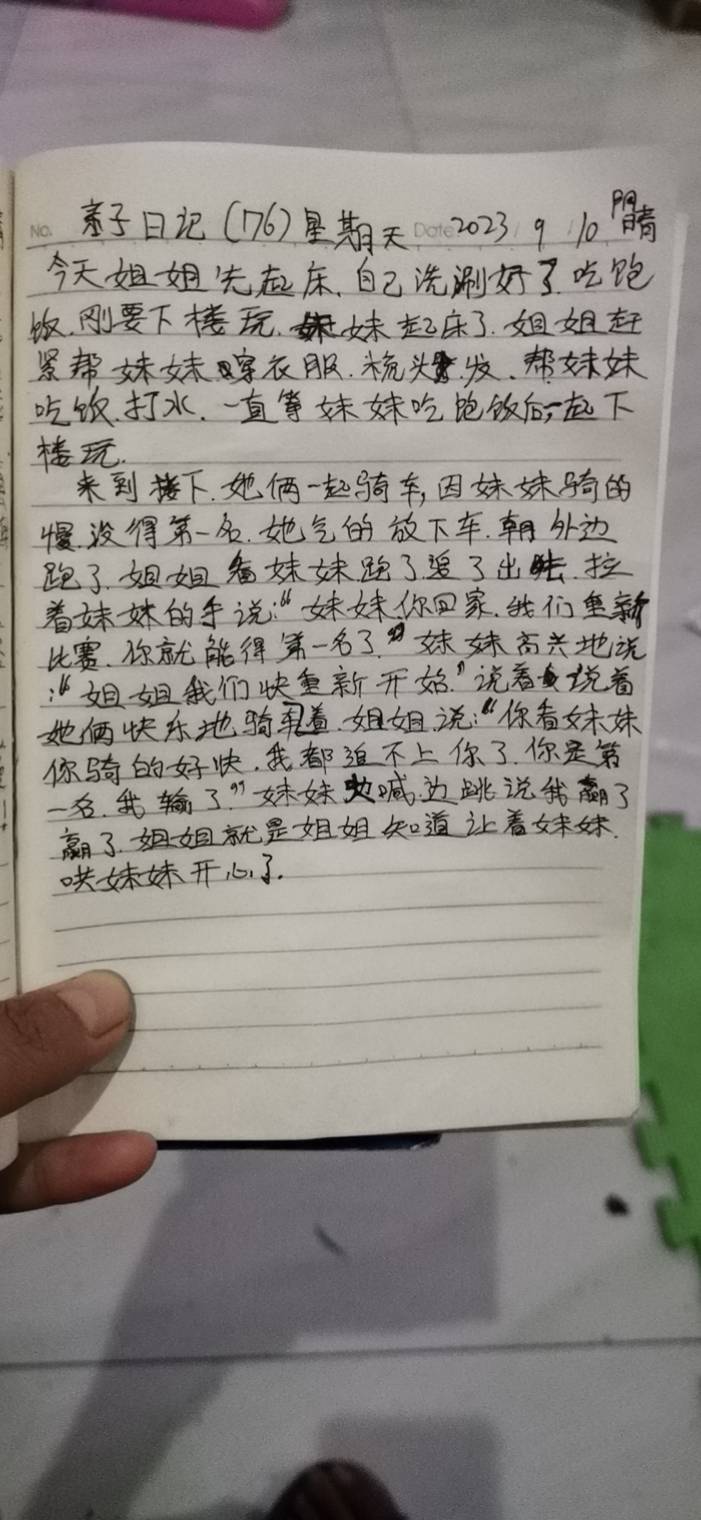 No. 亲子日记(176)星期天 Date 2023 9 10 阴晴
今天姐姐先起床.自己洗涮好了.吃饱
饭.刚要下楼玩.妹妹起床了.姐姐赶
紧帮妹妹穿衣服.梳头发.帮妹妹
吃饭.打水.一直等妹妹吃饱饭后一起下
楼玩.
来到楼下.她俩一起骑车,因妹妹骑的
慢.没得第一名.她气的放下车.朝外边
跑了.姐姐看妹妹跑了.追了出去.拉
着妹妹的手说:“妹妹.你回家.我们重新
比赛.你就能得第一名了.”妹妹高兴地说
:“姐姐我们快重新开始.”说着说着
她俩快乐地骑着.姐姐说:“你看妹妹
你骑的好快.我都追不上你了.你是第
一名.我输了.”妹妹边喊边跳说我赢了
赢了.姐姐就是姐姐知道让着妹妹.
哄妹妹开心了.